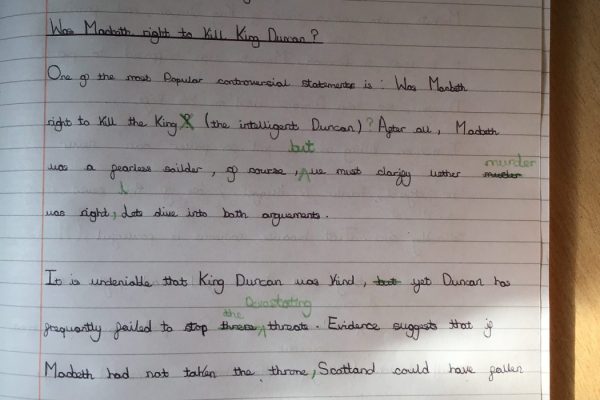 Was Macbeth right to kill King Duncan?
One of the most Popular controversial statements is: Was Macbeth
right to kill the King (the intelligent Duncan)? After all, Macbeth
but
was a fearless soilder, of course, we must clarify wether murder
murder
was right, Lets dive into both arguements.
It is undeniable that King Duncan was Kind, but yet Duncan has
Devastating
the
frequantly failed to stop threats. Evidence suggests that if
Macbeth had not taken the throne, Scotland could have fallen